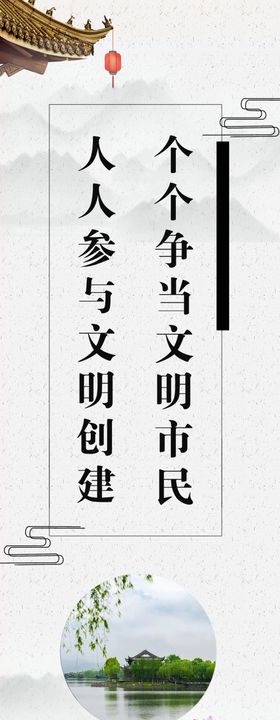 个个争当文明市民
人人参与文明创建